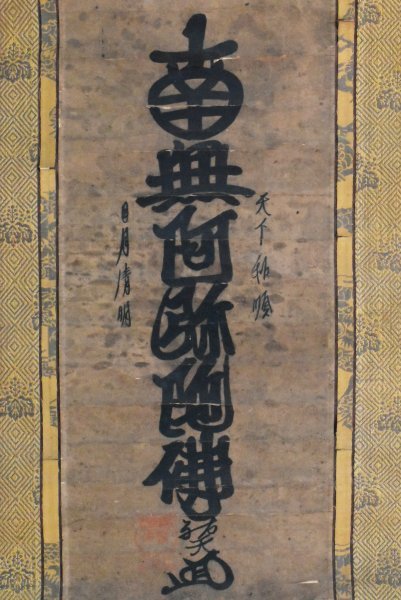 天下和順
南無阿弥陀佛
日月清明